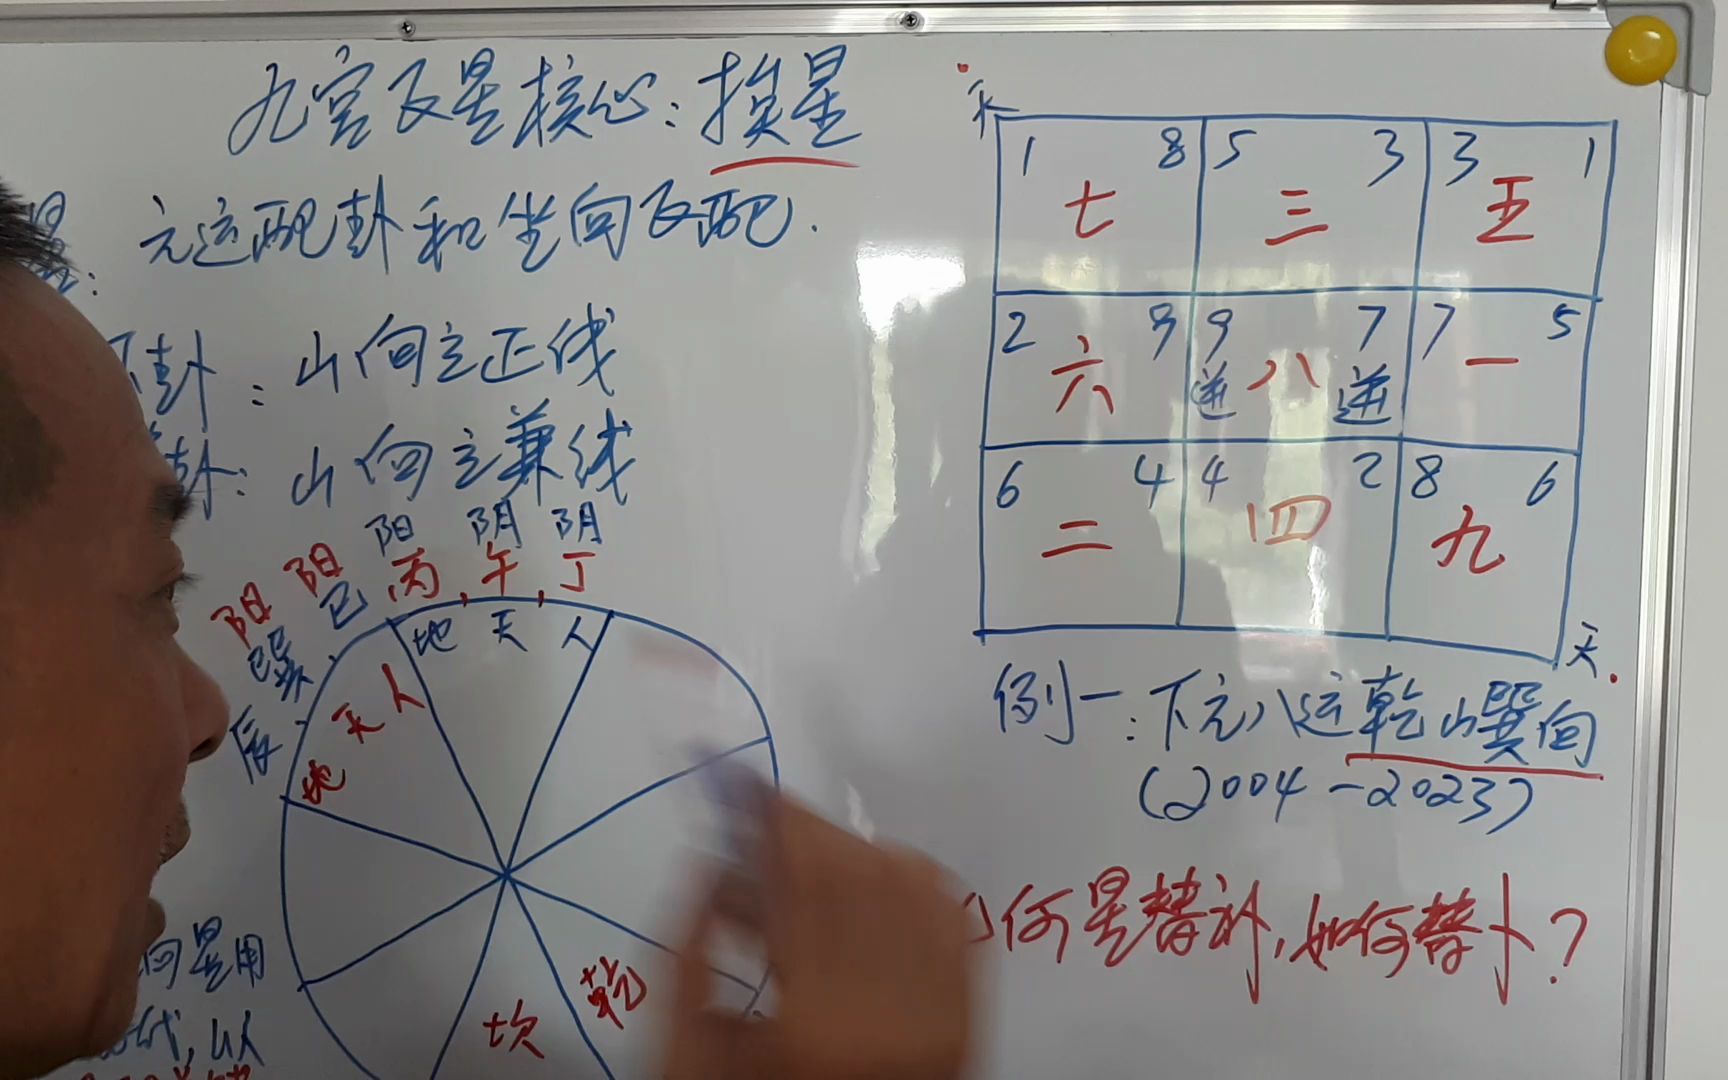 九宫飞星核心：挨星
元运配卦和坐向飞配.
卦：山向立正线
卦：山向立兼线
阳 阳 阳 阴 阴
巽 巳 丙 午 丁
辰
地 天 人 地 天 人
坎 乾
向星用
以
天
1 8 5 3 3 1
七 三 五
2 9 9 7 7 5
六 逆 八 逆 一
6 4 4 2 8 6
二 四 九
天
例一：下元八运乾山巽向
(2004-2023)
何星替补,如何替卜？